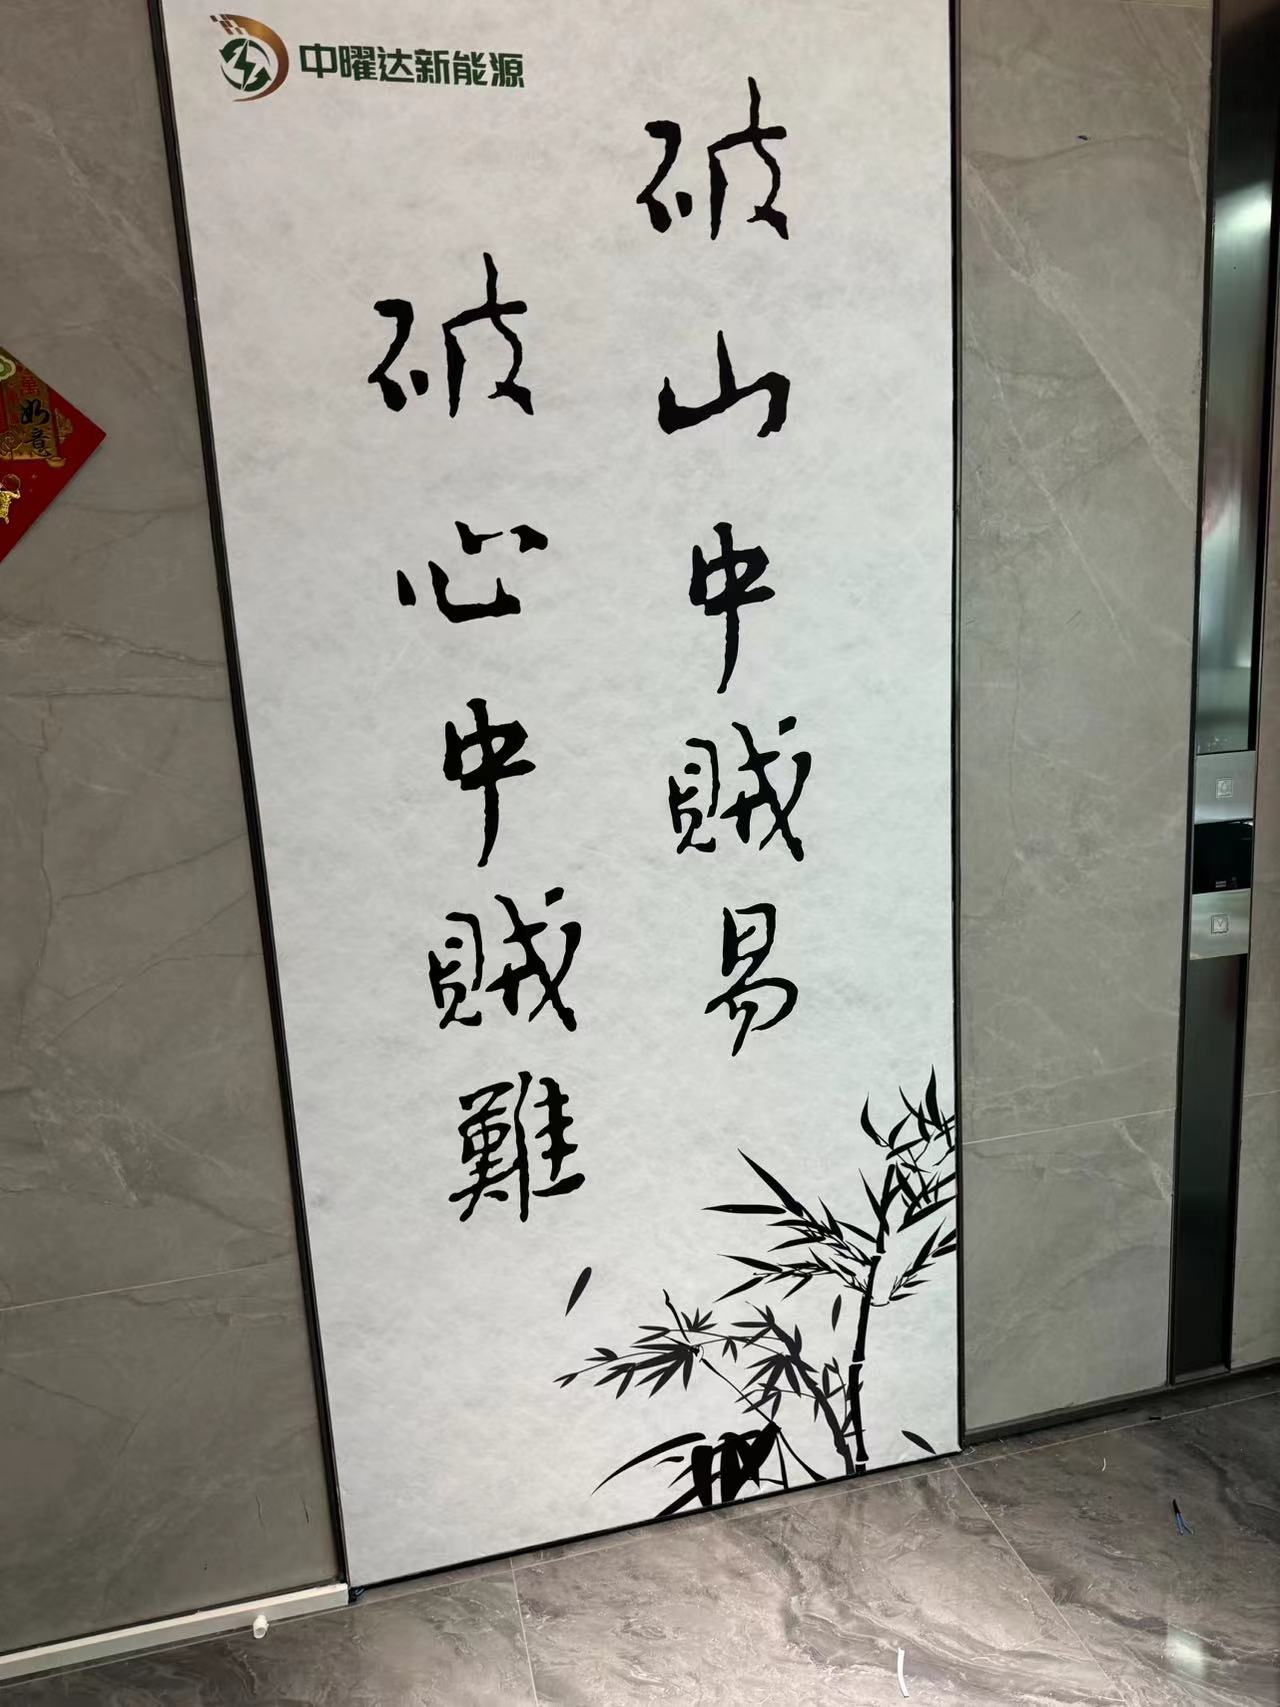 中曜达新能源
破山中賊易
破心中賊難
萬
如意